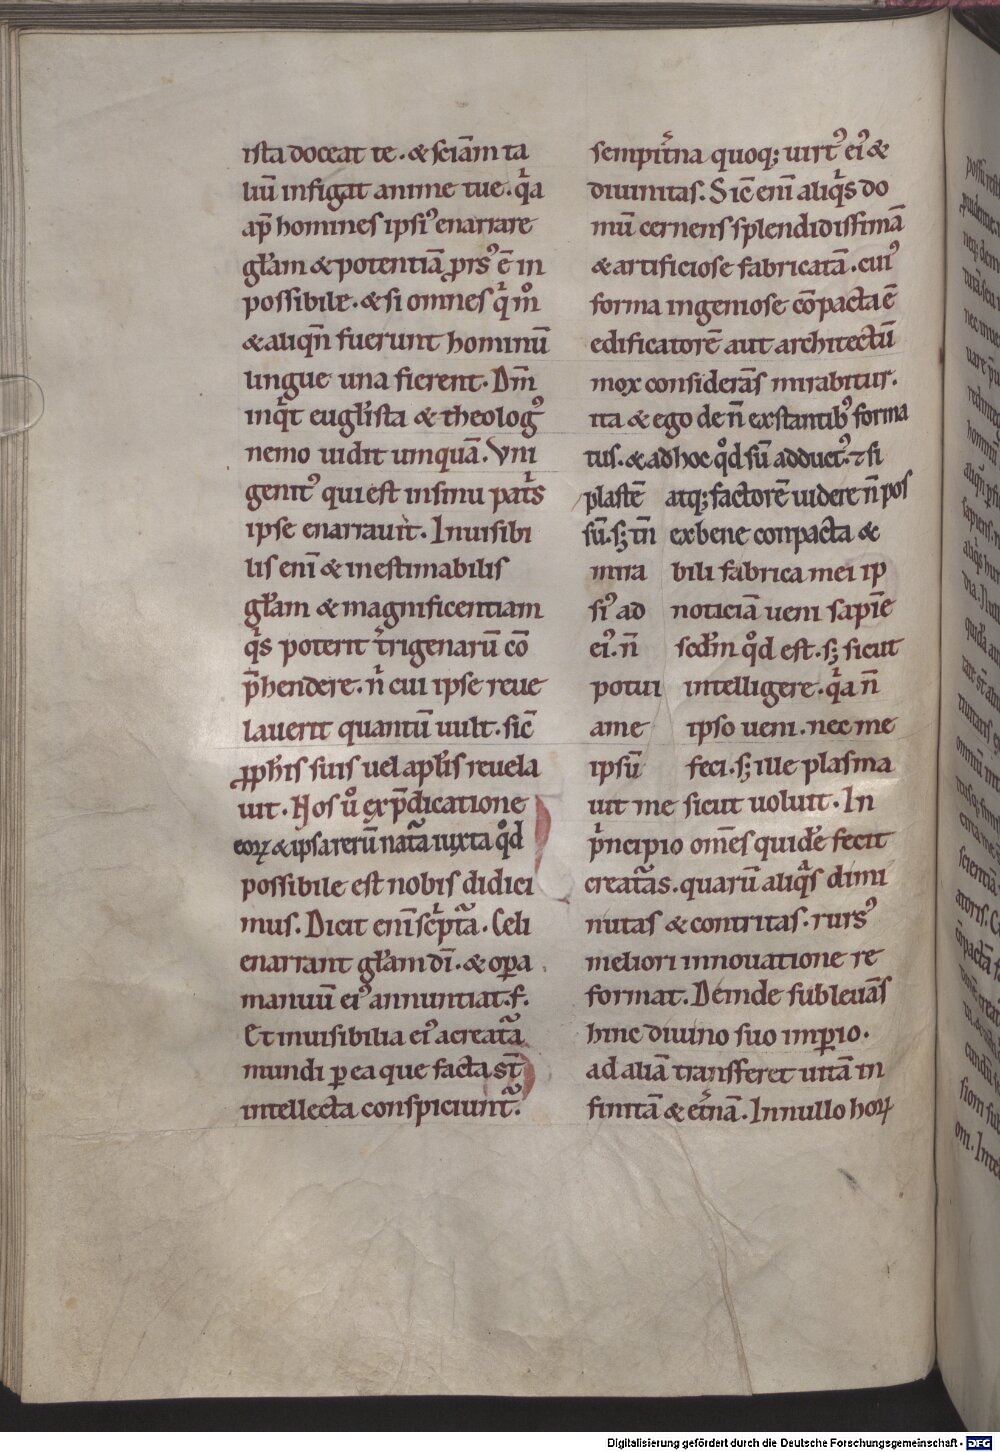 ista doceat te. & sciam̄ ta
liū infigat anime tue. qͥa
ap̄ homines ipsiꝰ enarrare
gl̄am & potentiā ꝓrsꝰ ē in
possibile. & si omnes qͥ m̊
& aliqn̄ fuerunt hominū
lingue una fierent. Dm̄
inqͥt eugl̄ista & theologꝰ
nemo uidit umquā. Vni
genitꝰ qui est in sinu patͥs
ipse enarrauit. Inuisibi
lis eni̅ & inestimabilis
gl̄am & magnificentiam
qͥs poterit t̾rigenarū cō
p̄hendere. nͥ cui ipse reue
lauerit quantū uult. sic̄
ꝓph̄is suis uel apl̄is reuela
uit. Hos ů ex p̄dicatione
eoꝝ & ipsa rerū natᷓa iuxta qͦd
possibile est nobis didici
mus. Dicit eni̅ sc̄pͥtᷓa. Celi
enarrant gl̄am dī. & oꝑa
manuū eiꝰ annuntiat. f.
Et inuisibilia eiꝰ a creatᷓa
mundi ꝑ ea que facta st̄
intellecta conspiciuntᷓ.
sempit̾na quoq; uirtꝰ eiꝰ &
diuinitas. Sic̄ eni̅ aliqͥs do
mū cernens splendidissimā
& artificiose fabricatā. cuiꝰ
forma ingeniose cōpacta ē
edificatorē aut architectū
mox considerās mirabitur.
ita & ego de n̄ exstantibꝰ forma
tus. & ad hoc qͦd sū adductꝰ. ⁊ si
plastē atq; factorē uidere n̄ pos
sū. s; tn̄ ex bene conpacta &
mira bili fabrica mei ip
siꝰ ad noticiā ueni sapiē
eiꝰ. n̄ scdm̄ qͦd est. s; sicut
potui intelligere. qͥa n̄
a me ipso ueni. nec me
ipsū feci. s; ille plasma
uit me sicut uoluit. In
pͥncipio om̄es quidē fecit
creatᷓas. quarū aliqᷓs dimi
nutas & contritas. rursꝰ
meliori innouatione re
format. Deinde subleuās
hinc diuino suo imꝑio.
ad aliā transferet uitā in
finitā & et̾nā. In nullo hoꝝ
Digitalisierung gefördert durch die Deutsche Forschungsgemeinschaft - DFG